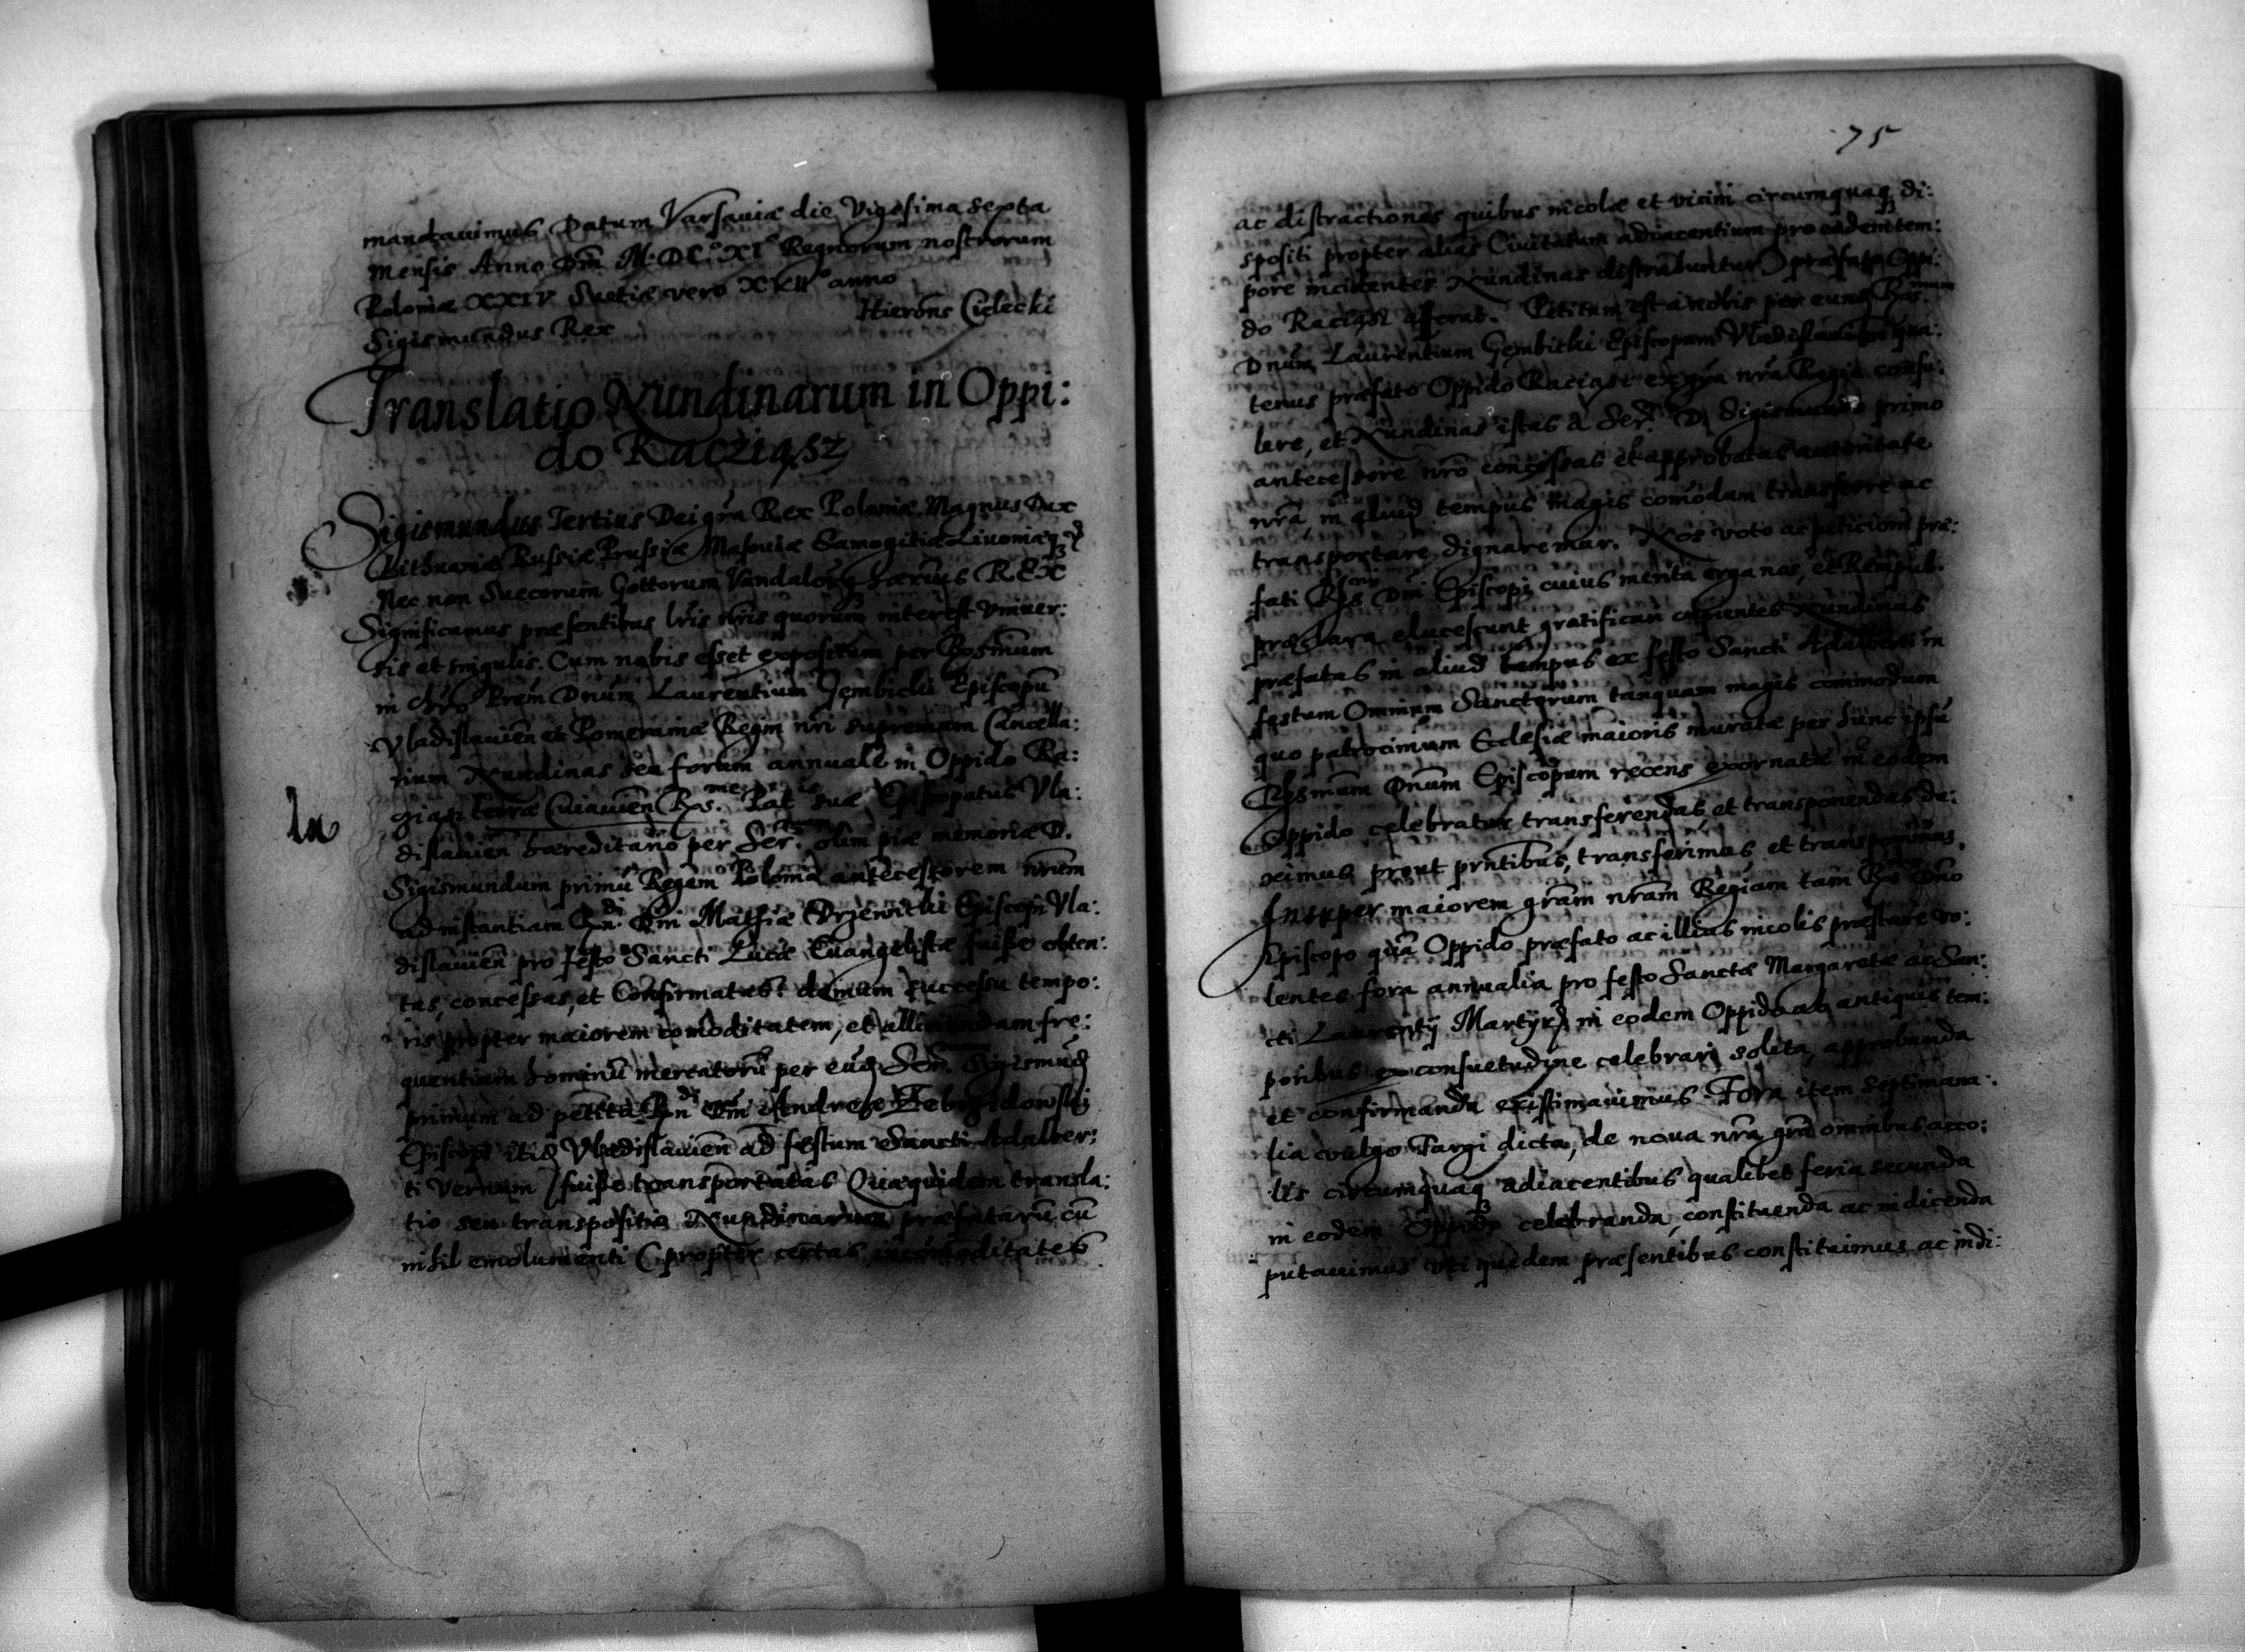 mandauimus Datum Varsauiæ die Vigesima Sexta
mensis Anno Dm̄ M.DC.º XIº Regnorum nostrorum
Poloniæ XXIV Suetiæ vero XVIIº anno
Sigismundus Rex Hierōns Cielecki
Translatio Nundinarum in Oppi:
do Racziąsz
Sigismundus Tertius Dei grā Rex Poloniæ Magnus Dux
Lithuaniæ Russiæ Prussiæ Masouiæ Samogitiæ Liuoniæq3
Nec non Suecorum Gottorum Vandalorūq hærius REX
Significamus præsentibus lris nris quorum interest Vniuer:
sis et singulis. Cum nobis esset expositum per Rosmūm
in Chrō Prem Dnūm Laurentium Gembicki Episcopū
Vladislauien̄ et Pomeraniæ Regni nr̄i supremum Cancella:
rium Nundinas seu forum annuale in Oppido Ra:
giąsi terræ Cuiauien̄ Ros. Pat suæ Episcopatus Vla:
dislauien hæreditario per Ser. olim piæ memoriæ D.
Sigismundum primū Regem Poloniæ antecessorem nr̄em
ad instantiam Rn̄di Dn̄i Mathiæ Drzewicki Episcopi Vla:
dislauien̄ pro festo Sancti Lucæ Euangelistæ fuisse obten:
tas, concessas, et Confirmatas: demum successu tempo:
ris propter maiorem comoditatem, et alliciendam fre:
quentiam hominū mercatorū per eūd Ser. Sigismūd
primum ad petita Rn̄di Dn̄i Andreæ Zebrzidowskij
Episcopi itid Vladislauien̄ ad festum Sancti Adalber:
ti Vernum fuisse transportatas Quæquidem transla:
tio seu transpositio Nundinarum præfatarū cū
nihil emolumenti (propter certas incomoditates
la
75
ac distractiones quibus incolæ et vicini circumquaq3 di:
spositi propter alias Ciuitatum adiacentium pro eodem tem:
pore incidentes Nundinas distrahuntur) præfato Oppi:
do Raciąsi afferat. Petitum est a nobis per eund Ros.mum
Dnūm Laurentium Gembicki Episcopum Vladislauien̄ qua:
tenus præfato Oppido Raciąsi ex grā nrā Regia consu:
lere, et Nundinas istas a Ser. D Sigismundo primo
antecessore nrō concessas et approbatas autoritate
nrā in aliud tempus magis comodum transferre ac
transportare dignaremur. Nos voto ac peticioni præ:
fati Ros Dn̄i Episcopi cuius merita erga nos, et Rempub.
præclara elucescunt gratificari cupientes Nundinas
præfatas in aliud tempus ex festo Sancti Adalberti in
festum Omnium Sanctorum tanquam magis commodum
quo patrocinium Ecclesiæ maioris muratæ per hunc ipsū
Rosmūm Dnūm Episcopum recens exornatæ in eodem
Oppido celebratur transferendas et transponendas du:
ximus prout prntibus, transferimus et transponimus.
Insuper maiorem grām nrām Regiam tam Ros Dn̄o
Episcopo quā Oppido præfato ac illius incolis præstare vo:
lentes fora annualia pro festo Sanctæ Margaretæ ac San:
cti Laurentij Martyr in eodem Oppido ab antiquis tem:
poribus ex consuetudine celebrari solita, approbanda
et confirmanda existimauimus. Fora item Septimana:
lia vulgo Targi dicta, de noua nrā grā omnibus acco:
lis circumquaq3 adiacentibus qualibet feria secunda
in eodem Oppido celebranda, constituenda ac indicenda
putauimus vti quidem præsentibus constituimus ac indi: